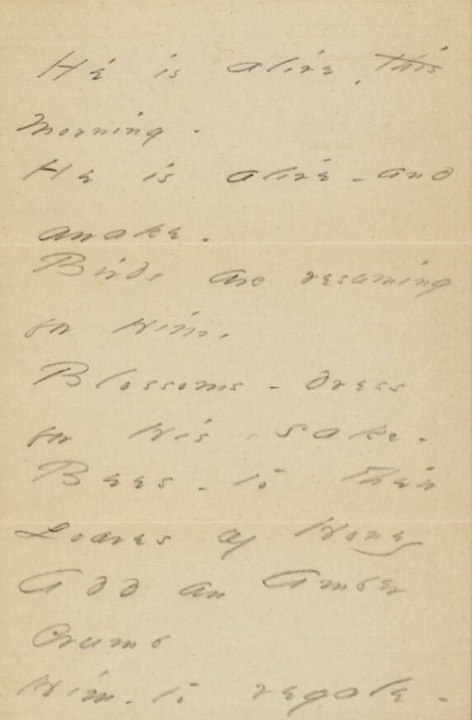 He is alive, this
morning -
He is alive - and
awake -
Birds are resuming
for Him,
Blossoms - dress
for His sake -
Bees - to their
Loaves of Honey
Add an Amber
Crumb
Him - to regale -